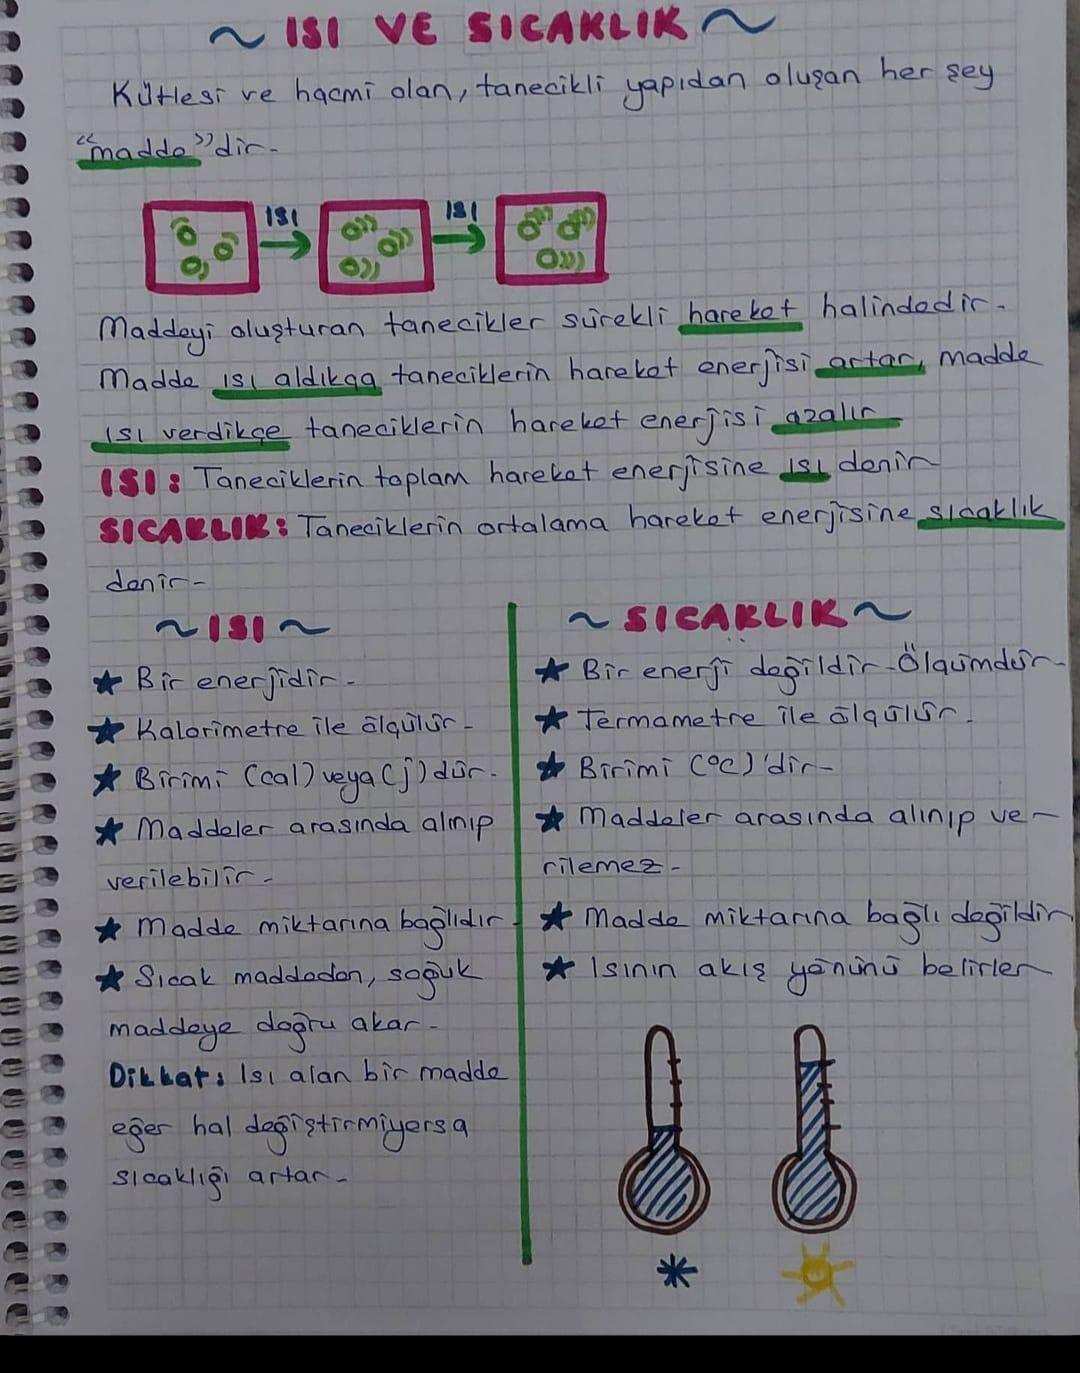 ~ ISI VE SICAKLIK ~
Kütlesi ve hacmi olan, tanecikli yapıdan oluşan her şey
"madde"dir.
ISI
ISI
Maddeyi oluşturan tanecikler sürekli hareket halindedir.
Madde ısı aldıkça taneciklerin hareket enerjisi artar, madde
ısı verdikçe taneciklerin hareket enerjisi azalır
ISI: Taneciklerin toplam hareket enerjisine ısı denir
SICAKLIK: Taneciklerin ortalama hareket enerjisine sıcaklık
denir-
~ ISI ~
★ Bir enerjidir-
★ Kalorimetre ile ölçülür-
★ Birimi (cal) veya (j) dür-
★ Maddeler arasında alınıp
verilebilir-
★ Madde miktarına bağlıdır-
★ Sıcak maddeden, soğuk
maddeye doğru akar-
Dikkat: Isı alan bir madde
eğer hal değiştirmiyorsa
sıcaklığı artar-
~ SICAKLIK ~
★ Bir enerji değildir-Ölçümdür-
★ Termametre ile ölçülür.
★ Birimi (°c)'dir-
★ Maddeler arasında alınıp ve-
rilemez-
★ Madde miktarına bağlı değildir
★ Isının akış yönünü belirler